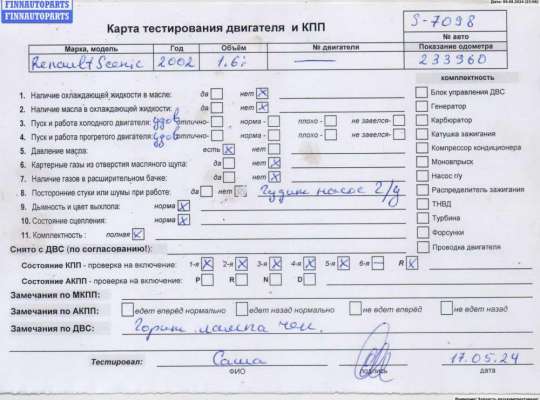 FINNAUTOPARTS
FINNAUTOPARTS
Карта тестирования двигателя и КПП
S-7098
№ авто
Марка, модель Год Объём № двигателя Показание одометра
Renault Scenic 2002 1.6i — 233960
комплектность
1. Наличие охлаждающей жидкости в масле: да нет X
Блок управления ДВС
2. Наличие масла в охлаждающей жидкости: да нет X
Генератор
3. Пуск и работа холодного двигателя: удов отлично- норма - плохо - не завелся-
Карбюратор
4. Пуск и работа прогретого двигателя: удов отлично- норма - плохо - не завелся-
Катушка зажигания
5. Давление масла: есть X нет
Компрессор кондиционера
6. Картерные газы из отверстия масляного щупа: да нет X
Моновпрыск
7. Наличие газов в расширительном бачке: да нет X
Насос г/у
8. Посторонние стуки или шумы при работе: да нет X Гудит насос г/у
Распределитель зажигания
9. Дымность и цвет выхлопа: норма X
ТНВД
10. Состояние сцепления: норма X
Турбина
11. Комплектность : полная X
Форсунки
Снято с ДВС (по согласованию!):
Проводка двигателя
Состояние КПП - проверка на включение: 1-я X 2-я X 3-я X 4-я X 5-я X 6-я — R X
Состояние АКПП - проверка на включение: P R N D
Замечания по МКПП:
Замечания по АКПП: едет вперёд нормально едет назад нормально не едет вперёд не едет назад
Замечания по ДВС: Горит лампа чек.
Тестировал: Саша 17.05.24
ФИО подпись дата